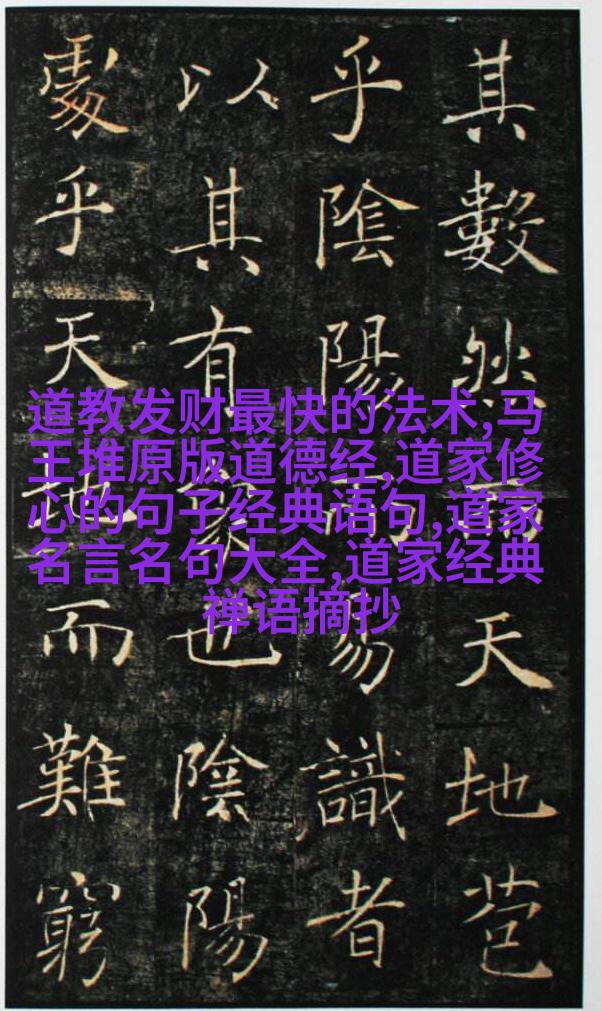 其數然而天地苞
乎陰陽而易識者
以其有象也陰陽
處乎天地而難窮
道教发财最快的法术,马
王堆原版道德经,道家修
心的句子经典语句,道家
名言名句大全,道家经典
禅语摘抄